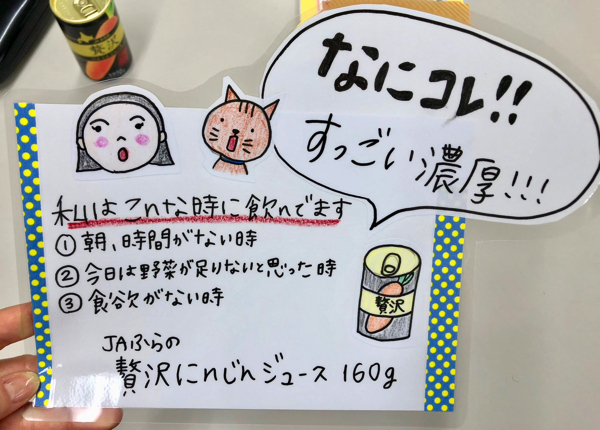 贅沢
なにコレ!!
すっごい濃厚!!!
私はこんな時に飲んでます
① 朝、時間がない時
② 今日は野菜が足りないと思った時
③ 食欲がない時
贅沢
JAふらの
贅沢にんじんジュース 160g